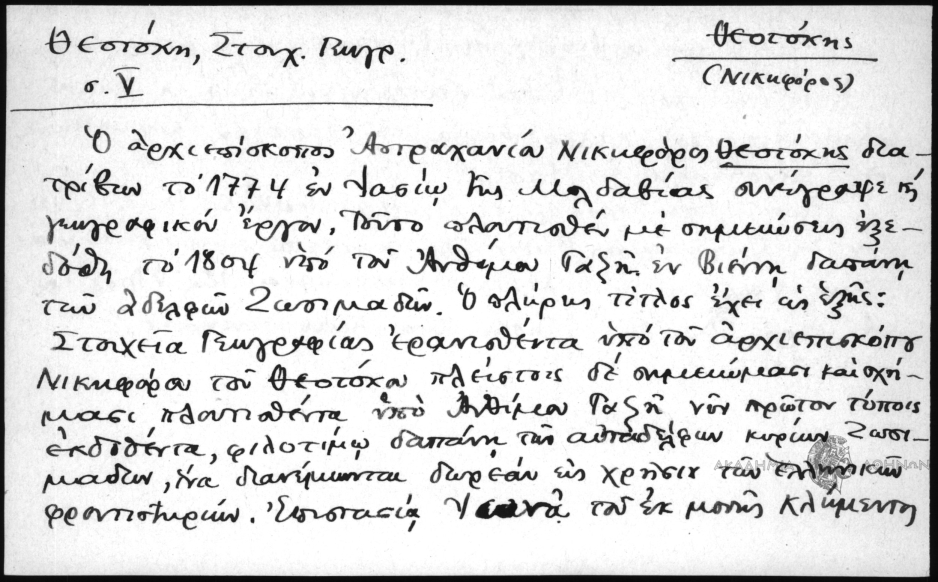 Θεοτόκη, Στοιχ. Γεωγρ.
σ. V
Θεοτόκης
(Νικηφόρος)
Ὁ ἀρχιεπίσκοπος Ἀστραχανίου Νικηφόρος Θεοτόκης δια-
τρίβων τὸ 1774 ἐν Ἰασίῳ τῆς Μολδαβίας συνέγραψε καὶ
γεωγραφικὸν ἔργον. Τοῦτο πλουτισθὲν μὲ σημειώσεις ἐξε-
δόθη τὸ 1804 ὑπὸ τοῦ Ἀνθίμου Γαζῆ ἐν Βιέννῃ δαπάνῃ
τῶν ἀδελφῶν Ζωσιμαδῶν. Ὁ πλήρης τίτλος ἔχει ὡς ἑξῆς:
Στοιχεῖα Γεωγραφίας ἐρανισθέντα ὑπὸ τοῦ ἀρχιεπισκόπου
Νικηφόρου τοῦ Θεοτόκου πλείστοις δὲ σημειώμασι καὶ σχή-
μασι πλουτισθέντα ὑπὸ Ἀνθίμου Γαζῆ νῦν πρῶτον τύποις
ἐκδοθέντα, φιλοτίμῳ δαπάνῃ τῶν αὐταδέλφων κυρίων Ζωσι-
μαδων, ἵνα διανέμωνται δωρεὰν εἰς χρῆσιν τῶν ἑλληνικῶν
φροντιστηρίων. Ἐπιστασίᾳ τοῦ ἐκ μονῆς Κλήμεντος
ΑΚΑΔΗΜΙΑ ΑΘΗΝΩΝ